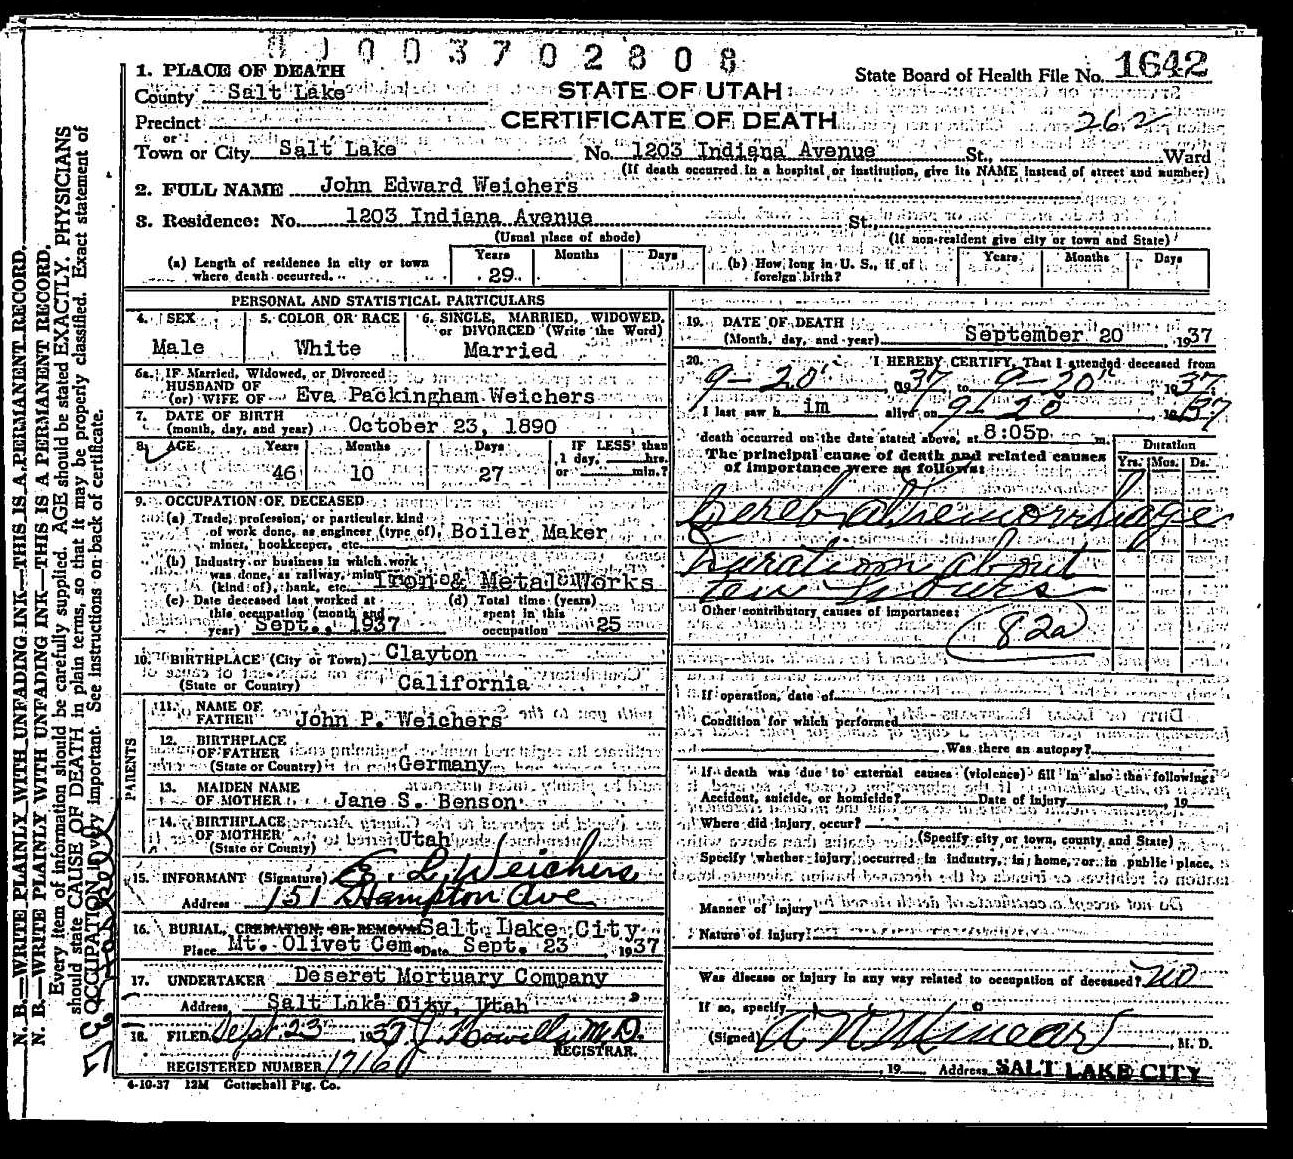 0 0 3 7 0 2 8 0 8
State Board of Health File No. 1642
STATE OF UTAH
CERTIFICATE OF DEATH
262
1. PLACE OF DEATH
County Salt Lake
Precinct
or
Town or City Salt Lake No. 1203 Indiana Avenue St., Ward
(If death occurred in a hospital or institution, give its NAME instead of street and number)
2. FULL NAME John Edward Weichers
3. Residence: No. 1203 Indiana Avenue St.
(Usual place of abode) (If non-resident give city or town and State)
(a) Length of residence in city or town where death occurred. Years 29 Months Days
(b) How long in U. S., if of foreign birth? Years Months Days
PERSONAL AND STATISTICAL PARTICULARS
4. SEX Male
5. COLOR OR RACE White
6. SINGLE, MARRIED, WIDOWED, or DIVORCED (Write the Word) Married
6a. IF Married, Widowed, or Divorced
HUSBAND OF
(or) WIFE OF Eva Packingham Weichers
7. DATE OF BIRTH
(month, day, and year) October 23, 1890
8. AGE Years 46 Months 10 Days 27 IF LESS than 1 day, hrs. or min.?
9. OCCUPATION OF DECEASED
(a) Trade, profession, or particular kind
of work done, as engineer (type of), Boiler Maker
miner, bookkeeper, etc.
(b) Industry or business in which work
was done, as railway, mine
(kind of), bank, etc. Iron & Metal Works
(c) Date deceased last worked at this occupation (month and year) Sept., 1937
(d) Total time (years) spent in this occupation 25
10. BIRTHPLACE (City or Town) Clayton
(State or Country) California
PARENTS
11. NAME OF FATHER John P. Weichers
12. BIRTHPLACE OF FATHER
(State or Country) Germany
13. MAIDEN NAME OF MOTHER Jane S. Benson
14. BIRTHPLACE OF MOTHER
(State or Country) Utah
15. INFORMANT (Signature) E. L. Weichers
Address 151 Hampton Ave
16. BURIAL, CREMATION, OR REMOVAL Salt Lake City
Place Mt. Olivet Cem. Date Sept. 23, 1937
17. UNDERTAKER Deseret Mortuary Company
Address Salt Lake City, Utah
18. FILED Sept 23, 1937 J. Howells M.D.
REGISTRAR.
REGISTERED NUMBER 1716
4-10-37 12M Gottschall Ptg. Co.
19. DATE OF DEATH
(Month, day, and year) September 20, 1937
20. I HEREBY CERTIFY, That I attended deceased from
9-20, 1937 to 9-20, 1937
I last saw him alive on 9-20 1937
death occurred on the date stated above, at 8:05p m.
The principal cause of death and related causes
of importance were as follows:
Duration
Yrs. Mos. Ds.
Cerebral Hemorrhage
Duration about
ten hours
Other contributory causes of importance:
82a
If operation, date of
Condition for which performed
Was there an autopsy?
If death was due to external causes (violence) fill in also the following:
Accident, suicide, or homicide? Date of injury, 19
Where did injury occur?
(Specify city or town, county and State)
Specify whether injury occurred in industry, in home, or in public place.
Manner of injury
Nature of injury
Was disease or injury in any way related to occupation of deceased? no
If so, specify
(Signed) , M. D.
, 19 Address SALT LAKE CITY
N. B.—WRITE PLAINLY WITH UNFADING INK—THIS IS A PERMANENT RECORD.
N. B.—WRITE PLAINLY WITH UNFADING INK—THIS IS A PERMANENT RECORD.
Every item of information should be carefully supplied. AGE should be stated EXACTLY. PHYSICIANS
should state CAUSE OF DEATH in plain terms, so that it may be properly classified. Exact statement of
OCCUPATION is very important. See instructions on back of certificate.